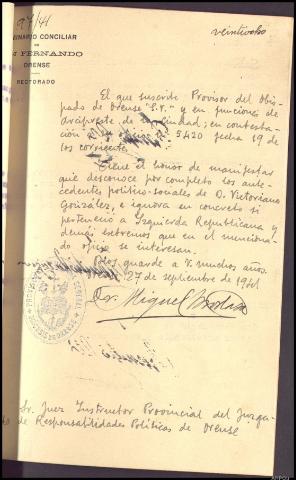 97/41
veintiocho
SEMINARIO CONCILIAR
DE
SAN FERNANDO
ORENSE
RECTORADO
El que suscribe Provisor del Obis-
pado de Orense "S.P." y en funciones de
Arcipreste de la Ciudad; en contesta-
ción 5420 fecha 19 de
los corrientes
Tiene el honor de manifestar
que desconoce por completo los ante-
cedentes político-sociales de D. Victoriano
González, e ignora en concreto si
perteneció a Izquierda Republicana y
demás extremos que en el menciona-
do oficio se interesan.
Dios guarde a V. muchos años.
27 de septiembre de 1941
Dr. Miguel
Sr. Juez Instructor Provincial del Juzga-
do de Responsabilidades Políticas de Orense